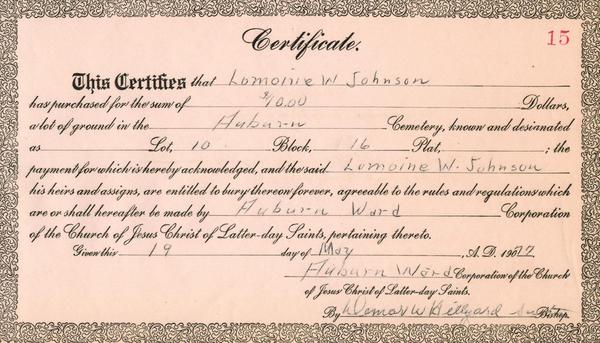 15
Certificate.
This Certifies that Lomoine W Johnson
has purchased for the sum of $10.00 Dollars,
a lot of ground in the Auburn Cemetery, known and desianated
as Lot, 10 Block, 16 Plat, ; the
payment for which is hereby acknowledged, and the said Lomoine W. Johnson
his heirs and assigns, are entitled to bury thereon forever, agreeable to the rules and regulations which
are or shall hereafter be made by Auburn Ward Corporation
of the Church of Jesus Christ of Latter-day Saints, pertaining thereto.
Given this 19 day of May , A. D. 19
Auburn Ward Corporation of the Church
of Jesus Christ of Latter-day Saints.
By W Hillyard Bishop.